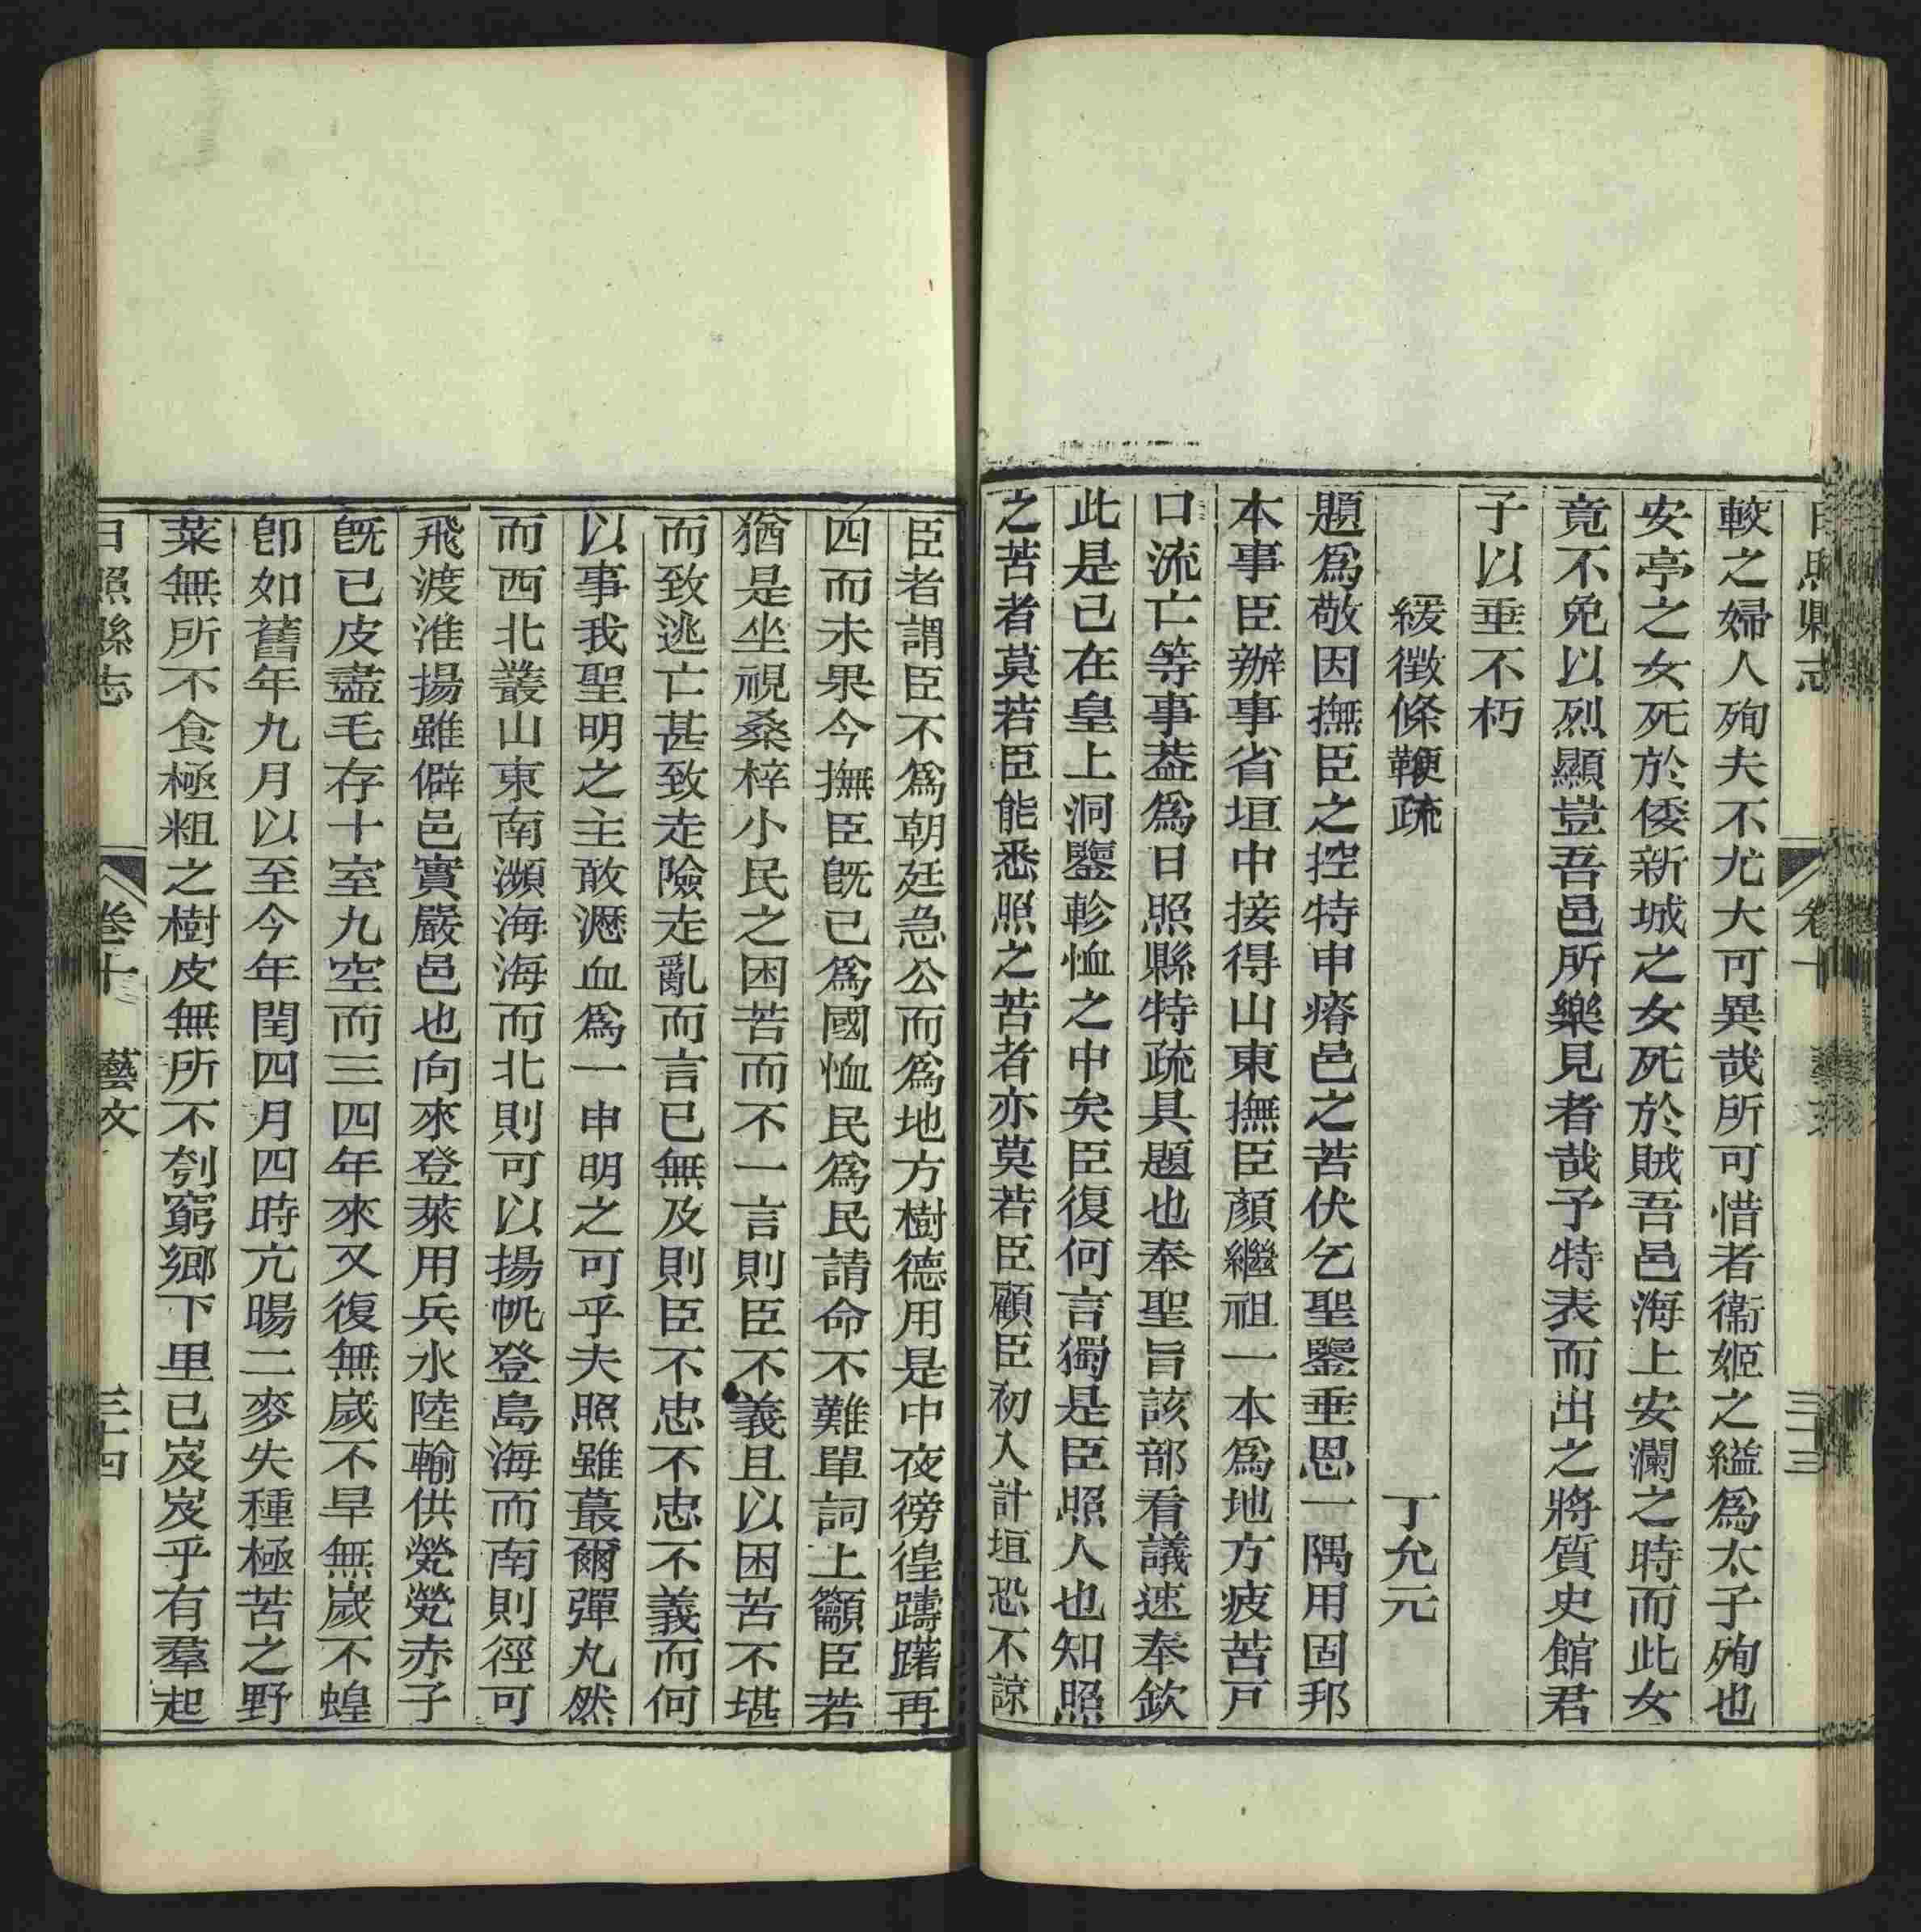 日照縣志 卷十 藝文 三十三
較之婦人殉夫不尤大可異哉所可惜者衞姬之縊爲太子殉也
安亭之女死於倭新城之女死於賊吾邑海上安瀾之時而此女
竟不免以烈顯豈吾邑所樂見者哉予特表而出之將質史館君
子以垂不朽
緩徵條鞭疏 丁允元
題爲敬因撫臣之控特申瘠邑之苦伏乞聖鑒垂恩一隅用固邦
本事臣辦事省垣中接得山東撫臣顏繼祖一本爲地方疲苦戸
口流亡等事葢爲日照縣特疏具題也奉聖旨該部看議速奉欽
此是已在皇上洞鑒軫恤之中矣臣復何言獨是臣照人也知照
之苦者莫若臣能悉照之苦者亦莫若臣顧臣初入計垣恐不諒
臣者謂臣不爲朝廷急公而爲地方樹德用是中夜徬徨躊躇再
四而未果今撫臣旣已爲國恤民爲民請命不難單詞上籲臣若
猶是坐視桑梓小民之困苦而不一言則臣不義且以困苦不堪
而致逃亡甚致走險走亂而言已無及則臣不忠不忠不義而何
以事我聖明之主敢瀝血爲一申明之可乎夫照雖蕞爾彈丸然
而西北叢山東南瀕海海而北則可以揚帆登島海而南則徑可
飛渡淮揚雖僻邑實嚴邑也向來登萊用兵水陸輸供煢煢赤子
旣已皮盡毛存十室九空而三四年來又復無歲不旱無歲不蝗
卽如舊年九月以至今年閏四月四時亢暘二麥失種極苦之野
菜無所不食極粗之樹皮無所不刳窮鄉下里已岌岌乎有羣起
日照縣志 卷十 藝文 三十四